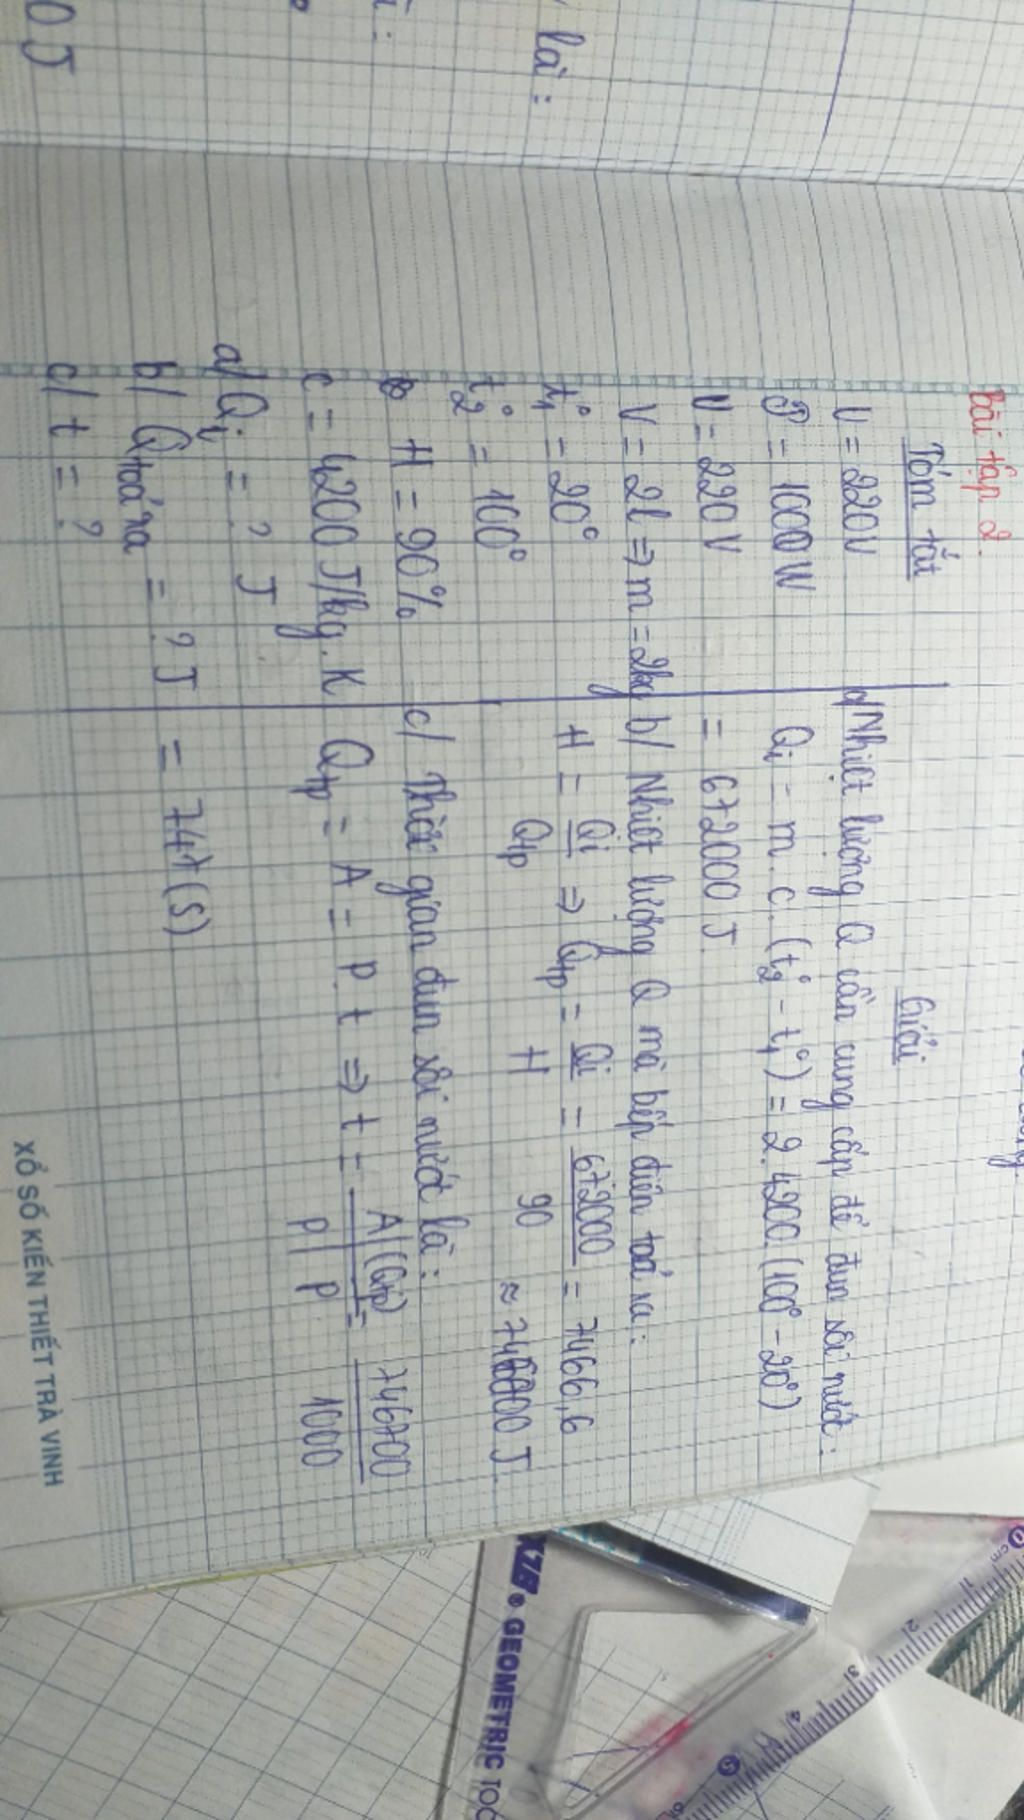 là:
0 J
Bài tập 2.
Tóm tắt
U = 220V
P = 1000W
U = 220V
V = 2l ⇒ m = 2kg
t°1 = 20°
t°2 = 100°
H = 90%
c = 4200 J/kg.K
a/ Qi = ? J
b/ Qtoả ra = ? J
c/ t = ?
Giải
a/ Nhiệt lượng Q cần cung cấp để đun sôi nước:
Qi = m.c.(t°2 - t°1) = 2.4200.(100° - 20°)
= 672000 J
b/ Nhiệt lượng Q mà bếp điện toả ra:
H = Qi/Qtp ⇒ Qtp = Qi/H = 672000/90 = 7466,6
≈ 746700 J
c/ Thời gian đun sôi nước là:
Qtp = A = P.t ⇒ t = A/P | (Qtp)/P = 746700/1000
= 747(s)
XỔ SỐ KIẾN THIẾT TRÀ VINH
® GEOMETRIC TOO
cm